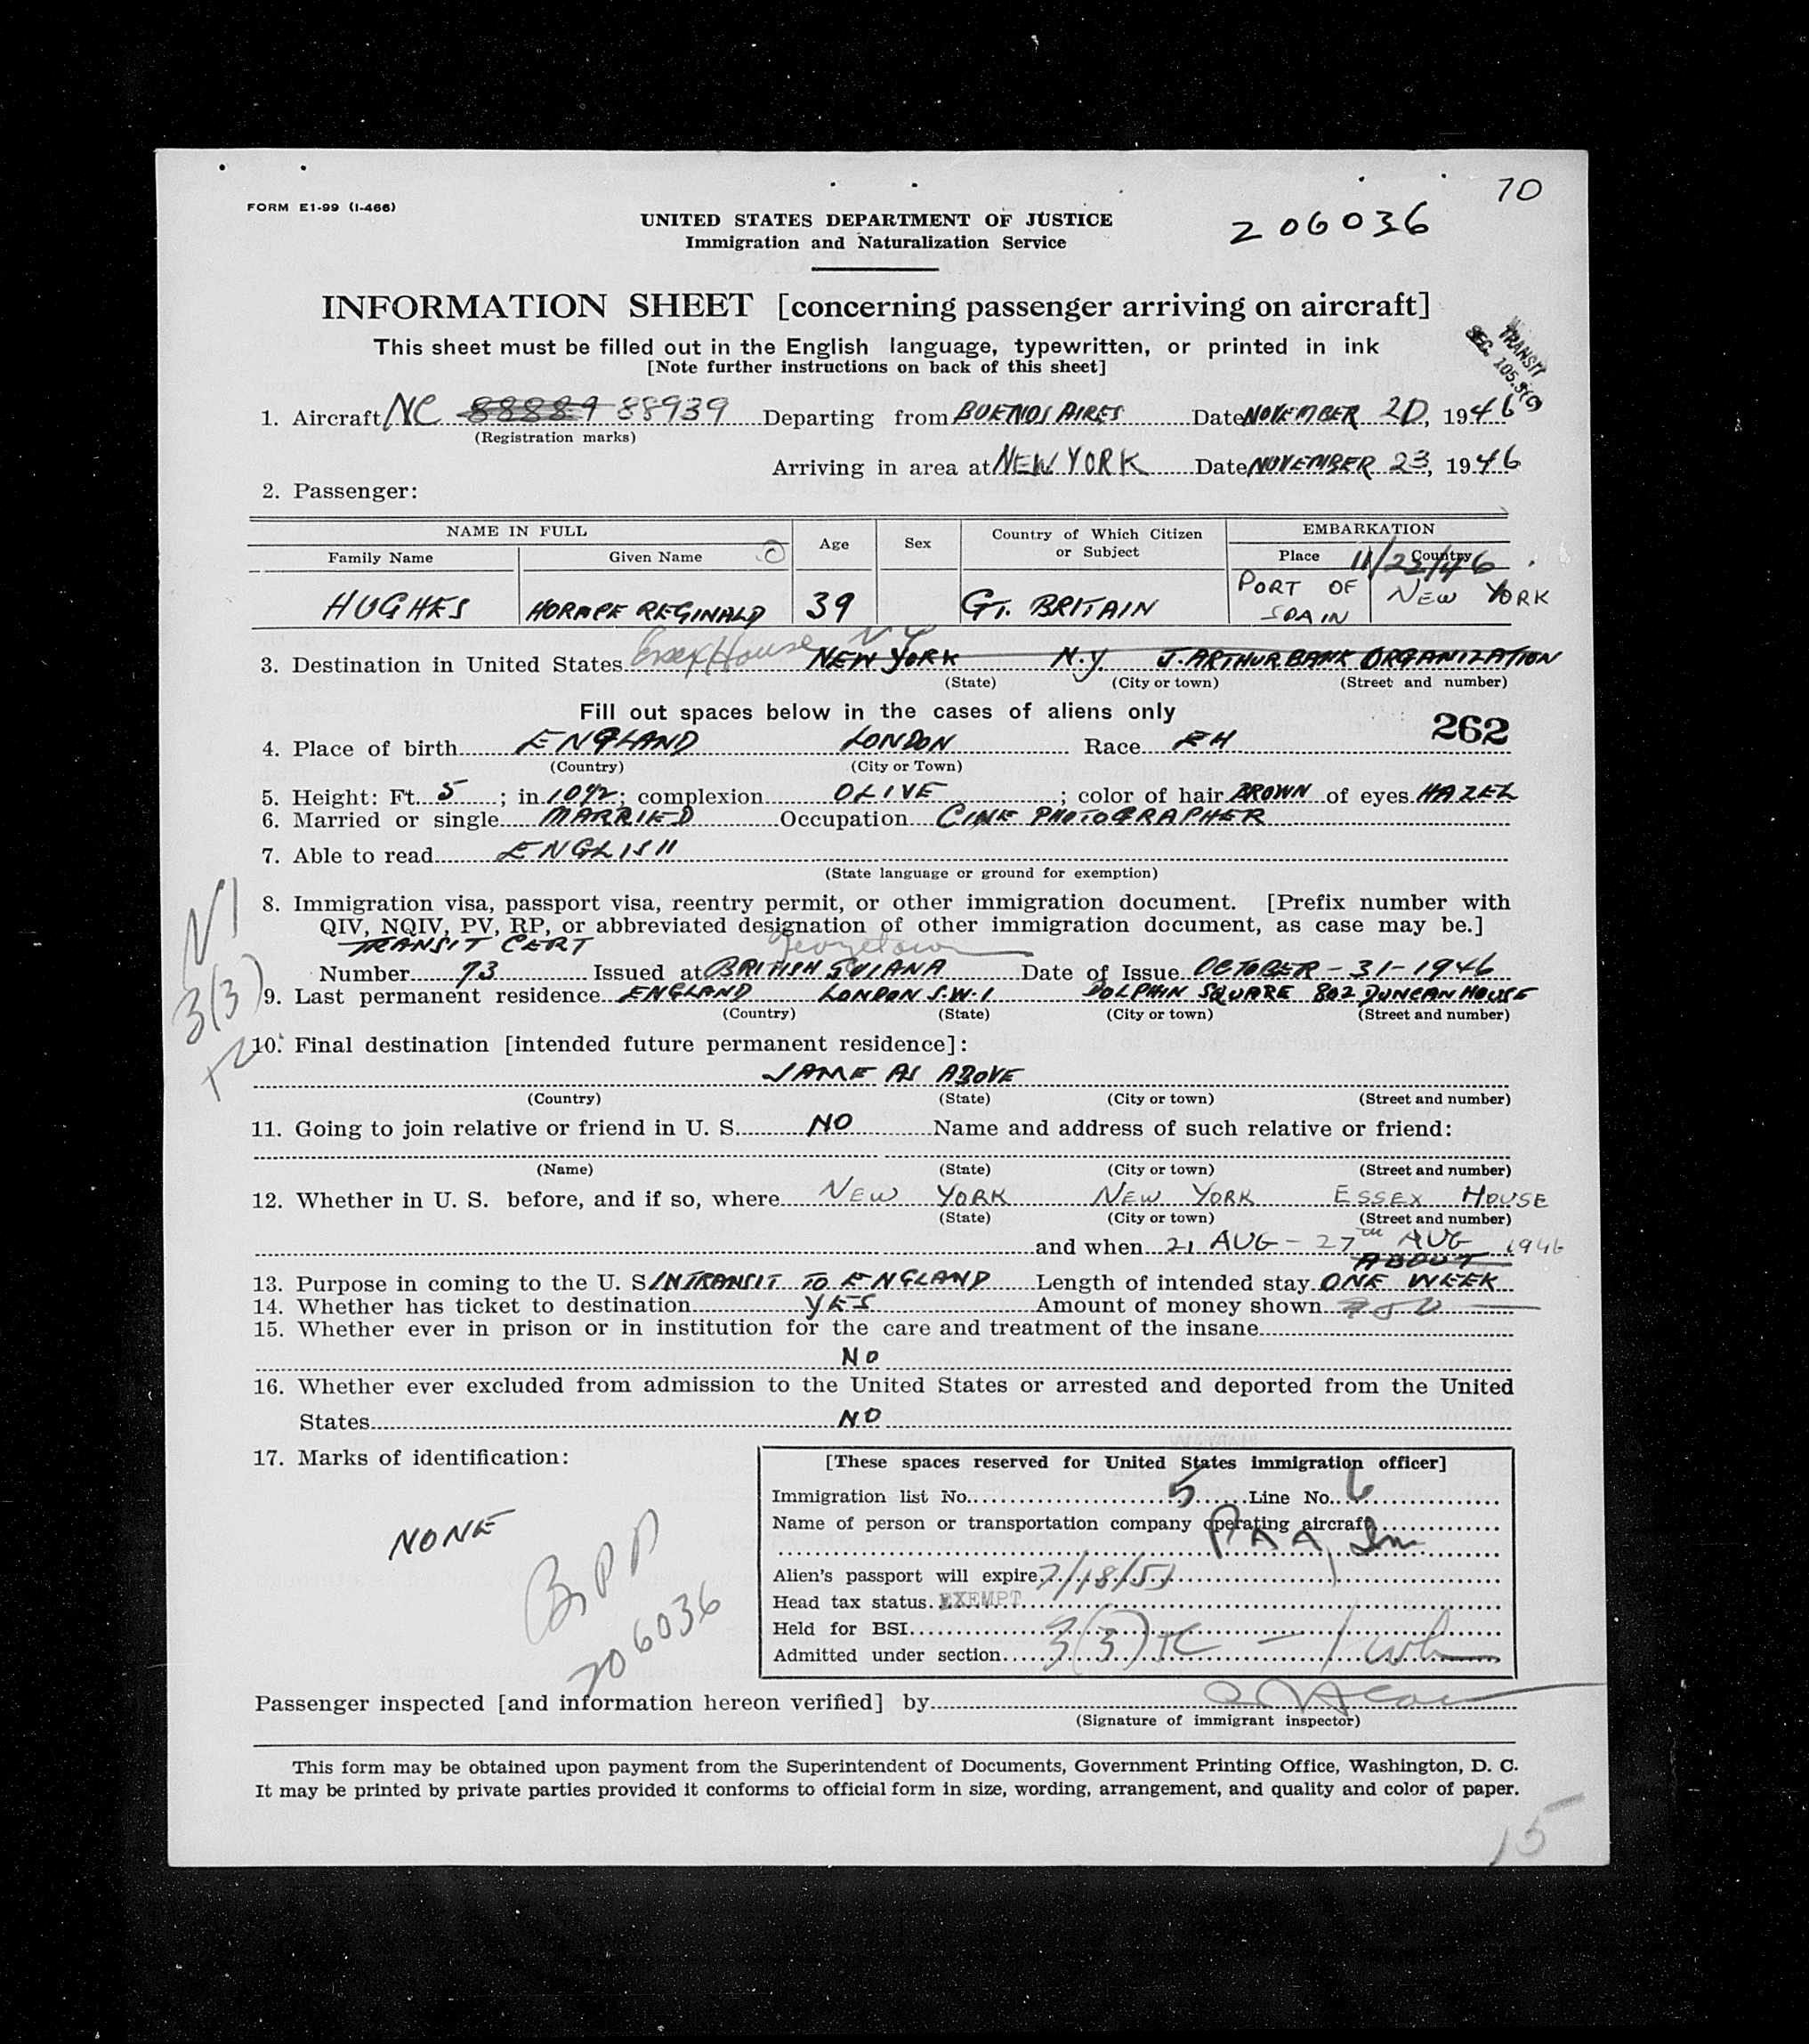 10
FORM E1-99 (I-466)
UNITED STATES DEPARTMENT OF JUSTICE
206036
Immigration and Naturalization Service
INFORMATION SHEET [concerning passenger arriving on aircraft]
This sheet must be filled out in the English language, typewritten, or printed in ink
[Note further instructions on back of this sheet]
TRANSIT
SEC. 105.3(c)
1. Aircraft NC 88889 88939 Departing from BUENOS AIRES Date NOVEMBER 20, 1946
(Registration marks)
Arriving in area at NEW YORK Date NOVEMBER 23, 1946
2. Passenger:
NAME IN FULL Age Sex Country of Which Citizen or Subject EMBARKATION
Family Name Given Name Place Country
11/23/46
HUGHES HORACE REGINALD 39 GT. BRITAIN PORT OF SPAIN NEW YORK
3. Destination in United States Essex House N Y NEW YORK N.Y J. ARTHUR RANK ORGANIZATION
(State) (City or town) (Street and number)
Fill out spaces below in the cases of aliens only
262
4. Place of birth ENGLAND LONDON Race RH
(Country) (City or Town)
5. Height: Ft. 5; in 10 1/2; complexion OLIVE; color of hair BROWN of eyes HAZEL
6. Married or single MARRIED Occupation CINE PHOTOGRAPHER
7. Able to read ENGLISH
(State language or ground for exemption)
8. Immigration visa, passport visa, reentry permit, or other immigration document. [Prefix number with
QIV, NQIV, PV, RP, or abbreviated designation of other immigration document, as case may be.]
TRANSIT CERT Georgetown
Number 73 Issued at BRITISH GUIANA Date of Issue OCTOBER-31-1946
3(3)
9. Last permanent residence ENGLAND LONDON S.W.1 DOLPHIN SQUARE 802 DUNCAN HOUSE
(Country) (State) (City or town) (Street and number)
10. Final destination [intended future permanent residence]:
SAME AS ABOVE
(Country) (State) (City or town) (Street and number)
11. Going to join relative or friend in U. S. NO Name and address of such relative or friend:
(Name) (State) (City or town) (Street and number)
12. Whether in U. S. before, and if so, where NEW YORK NEW YORK ESSEX HOUSE
(State) (City or town) (Street and number)
and when 21 AUG - 27TH AUG 1946
ABOUT
13. Purpose in coming to the U. S. IN TRANSIT TO ENGLAND Length of intended stay ONE WEEK
14. Whether has ticket to destination YES Amount of money shown
15. Whether ever in prison or in institution for the care and treatment of the insane
NO
16. Whether ever excluded from admission to the United States or arrested and deported from the United
States NO
17. Marks of identification:
NONE
206036
[These spaces reserved for United States immigration officer]
Immigration list No. 5 Line No. 6
Name of person or transportation company operating aircraft
PAA, In
Alien's passport will expire 7/18/51
Head tax status. EXEMPT
Held for BSI
Admitted under section 3(3) TC - 1 wk
Passenger inspected [and information hereon verified] by
(Signature of immigrant inspector)
This form may be obtained upon payment from the Superintendent of Documents, Government Printing Office, Washington, D. C.
It may be printed by private parties provided it conforms to official form in size, wording, arrangement, and quality and color of paper.
15